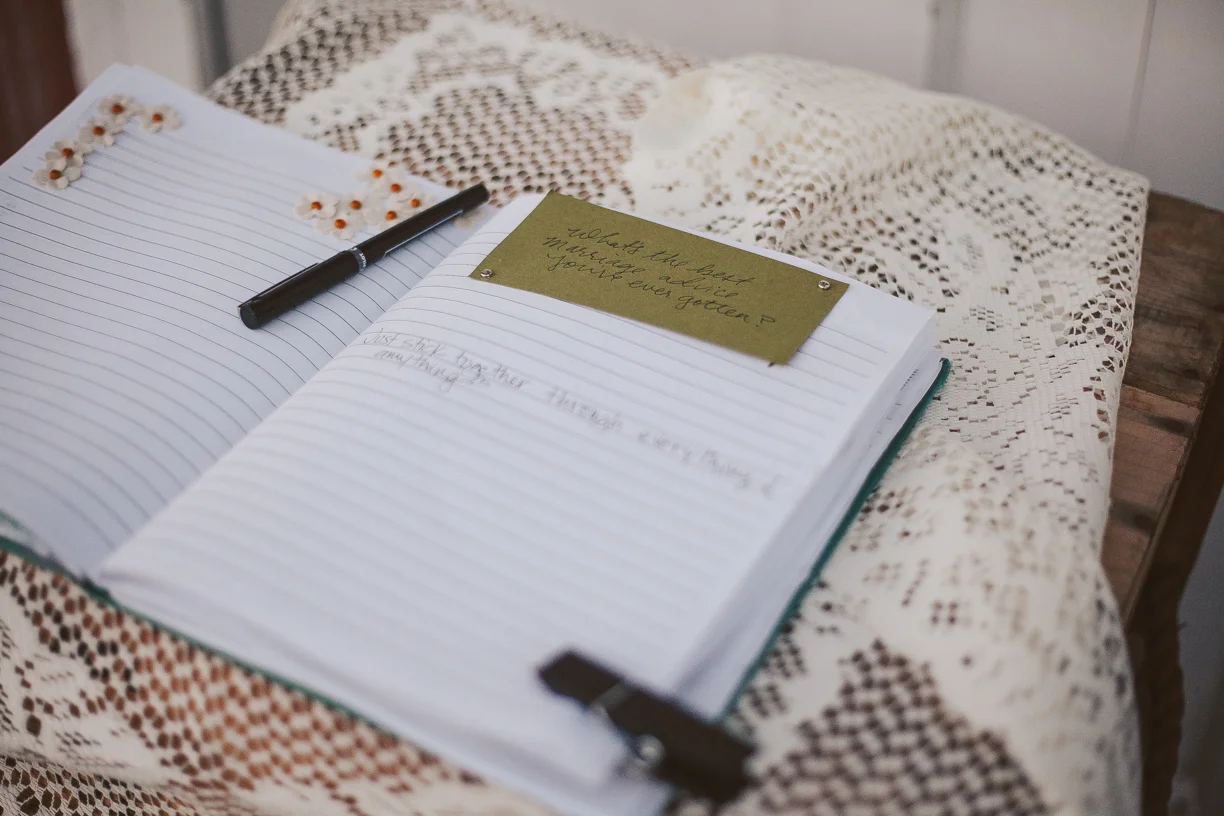 What's the best
Marriage advice
you've ever gotten?
Just stick together through everything &
anything